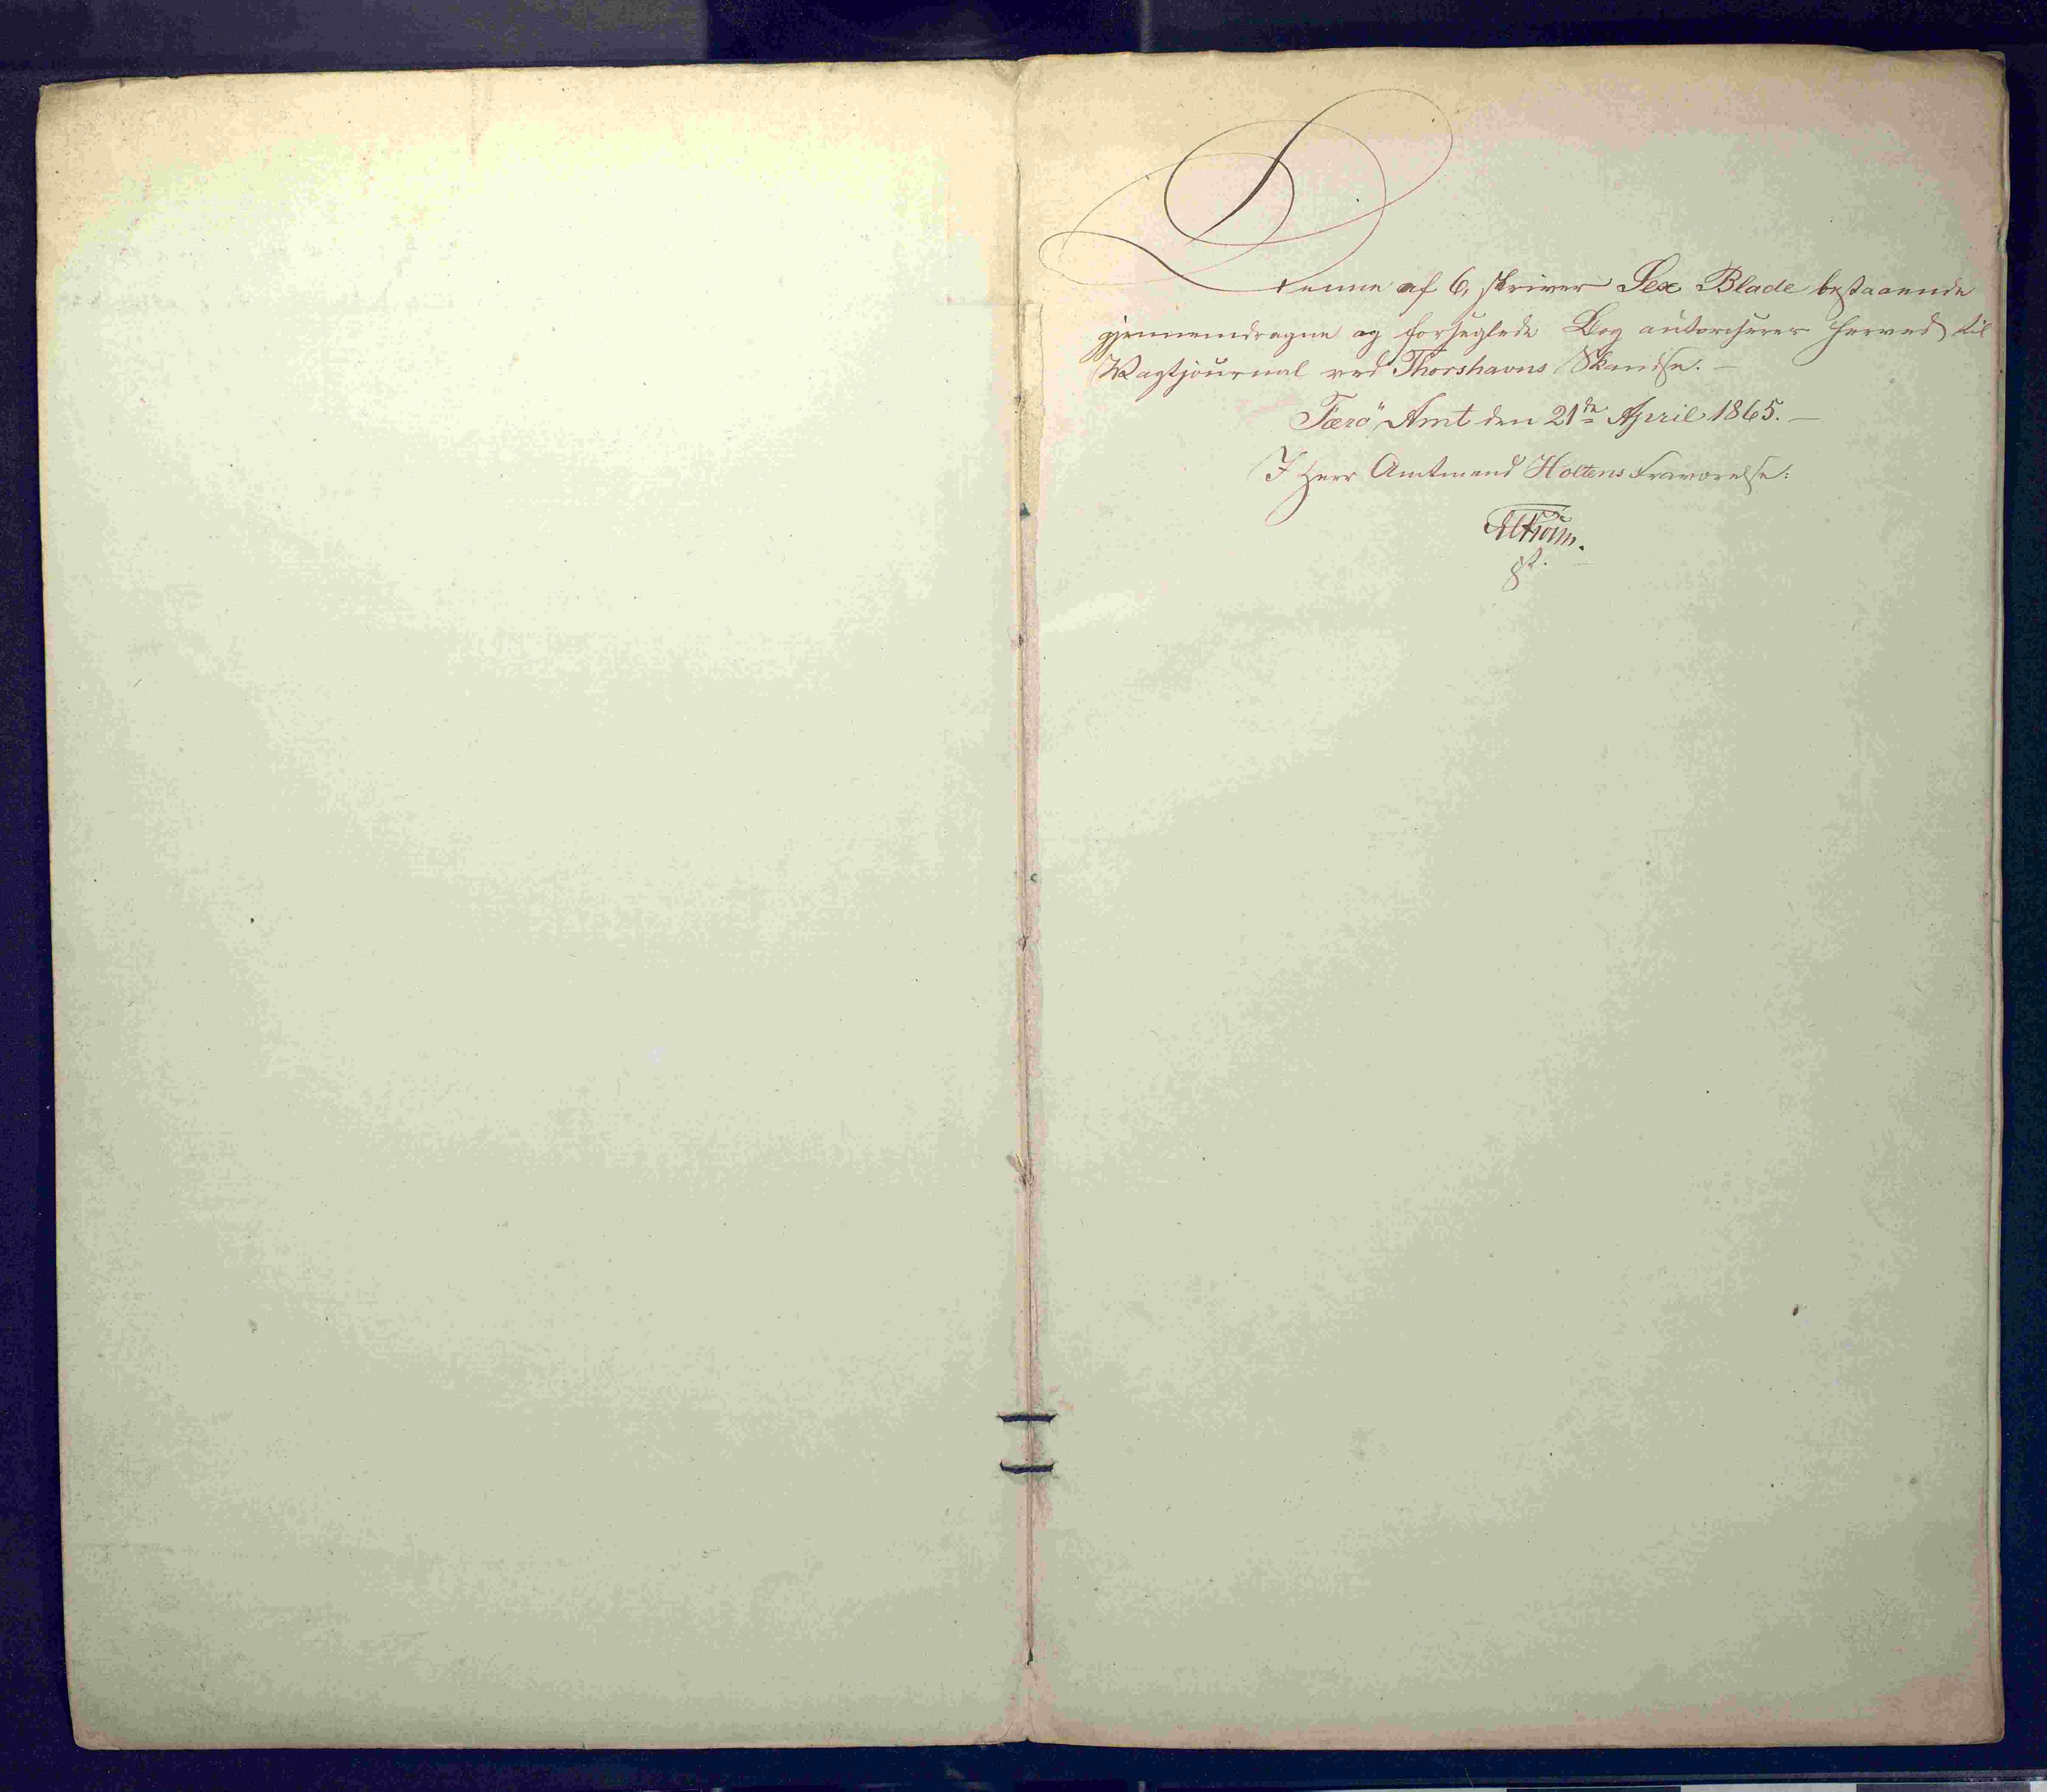 Denne af 6, skriver Sex Blade bestaaende
gjennemdragne og forseglede Bog autoriserer herved til
Vagtjournal ved Thorshavns Skandse. —
Færø Amt den 21de April 1865. —
I Herr Amtmand Holtens Fraværelse: